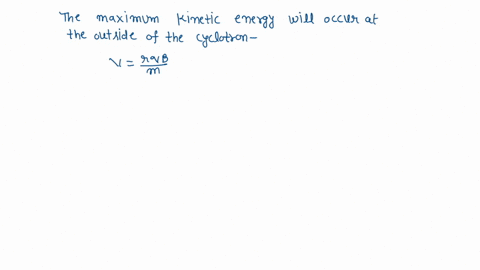 The maximum kinetic energy will occur at
the outside of the cyclotron-
V = rqB/m